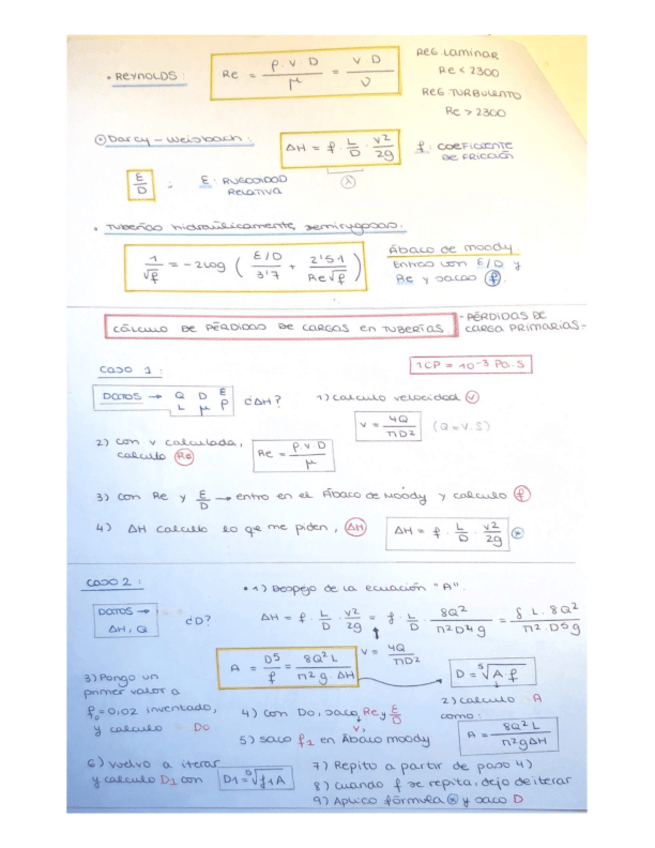 • REYNOLDS: Re = ρ·v·D / μ = v·D / ν
REG. Laminar
Re < 2300
REG. TURBULENTO
Re > 2300
⊙ Darcy - Weisbach: ΔH = f · L/D · v²/2g
f: COEFICIENTE DE FRICCIÓN
λ
E/D ; E: RUGOSIDAD RELATIVA
• Tuberías hidraúlicamente semirugosas.
1/√f = -2log ( E/D / 3'7 + 2'51 / Re√f )
Ábaco de moody.
Entras con E/D y
Re y sacas f.
CÁLCULO DE PÉRDIDAS DE CARGAS EN TUBERÍAS
-PÉRDIDAS DE
CARGA PRIMARIAS-
Caso 1:
1CP = 10⁻³ Pa·S
DATOS → Q D E
L μ ρ
¿ΔH?
1) calculo velocidad v
v = 4Q / πD² (Q=V.S)
2) con v calculada,
calculo Re
Re = ρ.v.D / μ
3) con Re y E/D → entro en el Ábaco de Moody y calculo f
4) ΔH calculo lo que me piden, ΔH
ΔH = f · L/D · v²/2g *
Caso 2:
DATOS →
ΔH, Q
¿D?
• 1) Despejo de la ecuación "A".
ΔH = f · L/D · v²/2g = f · L/D · 8Q² / π²D⁴g = f L · 8Q² / π² · D⁵g
v = 4Q / πD²
A = D⁵/f = 8Q²L / π²g·ΔH
D = ⁵√A·f
2) calculo A
como:
A = 8Q²L / π²gΔH
3) Pongo un
primer valor a
f₀=0,02 inventado,
y calculo D₀
4) con D₀, saco Re y E/D
v,
5) saco f₁ en Ábaco moody
6) vuelvo a iterar
y calculo D₁ con D₁=⁵√f₁A
7) Repito a partir de paso 4)
8) cuando f se repita, dejo de iterar
9) Aplico fórmula * y saco D